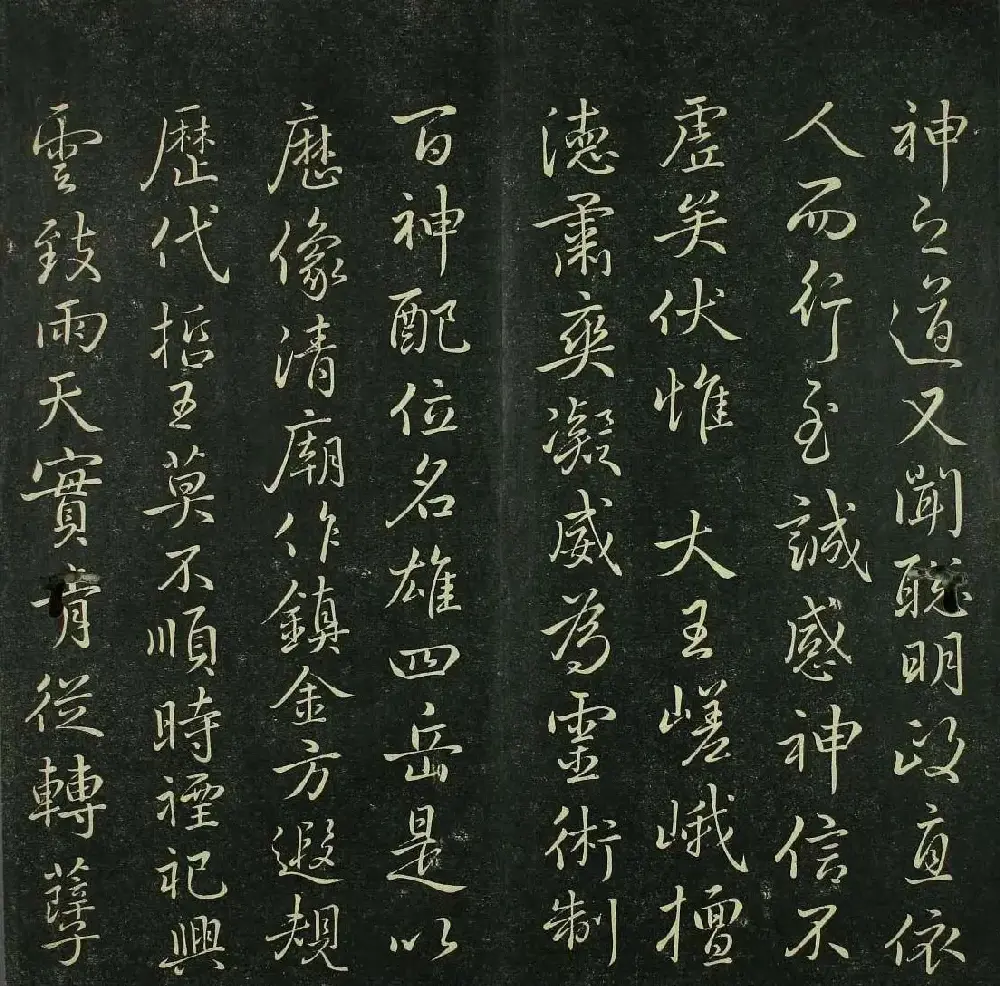 神之道又聞聡明政直依
人而行至誠感神信不
虛矣伏惟大王嵯峨擅
德肅爽凝威為靈術制
百神配位名雄四岳是以
歷像清廟作鎮金方遐規
歷代哲王莫不順時禋祀興
雲致雨天實肯從轉孽